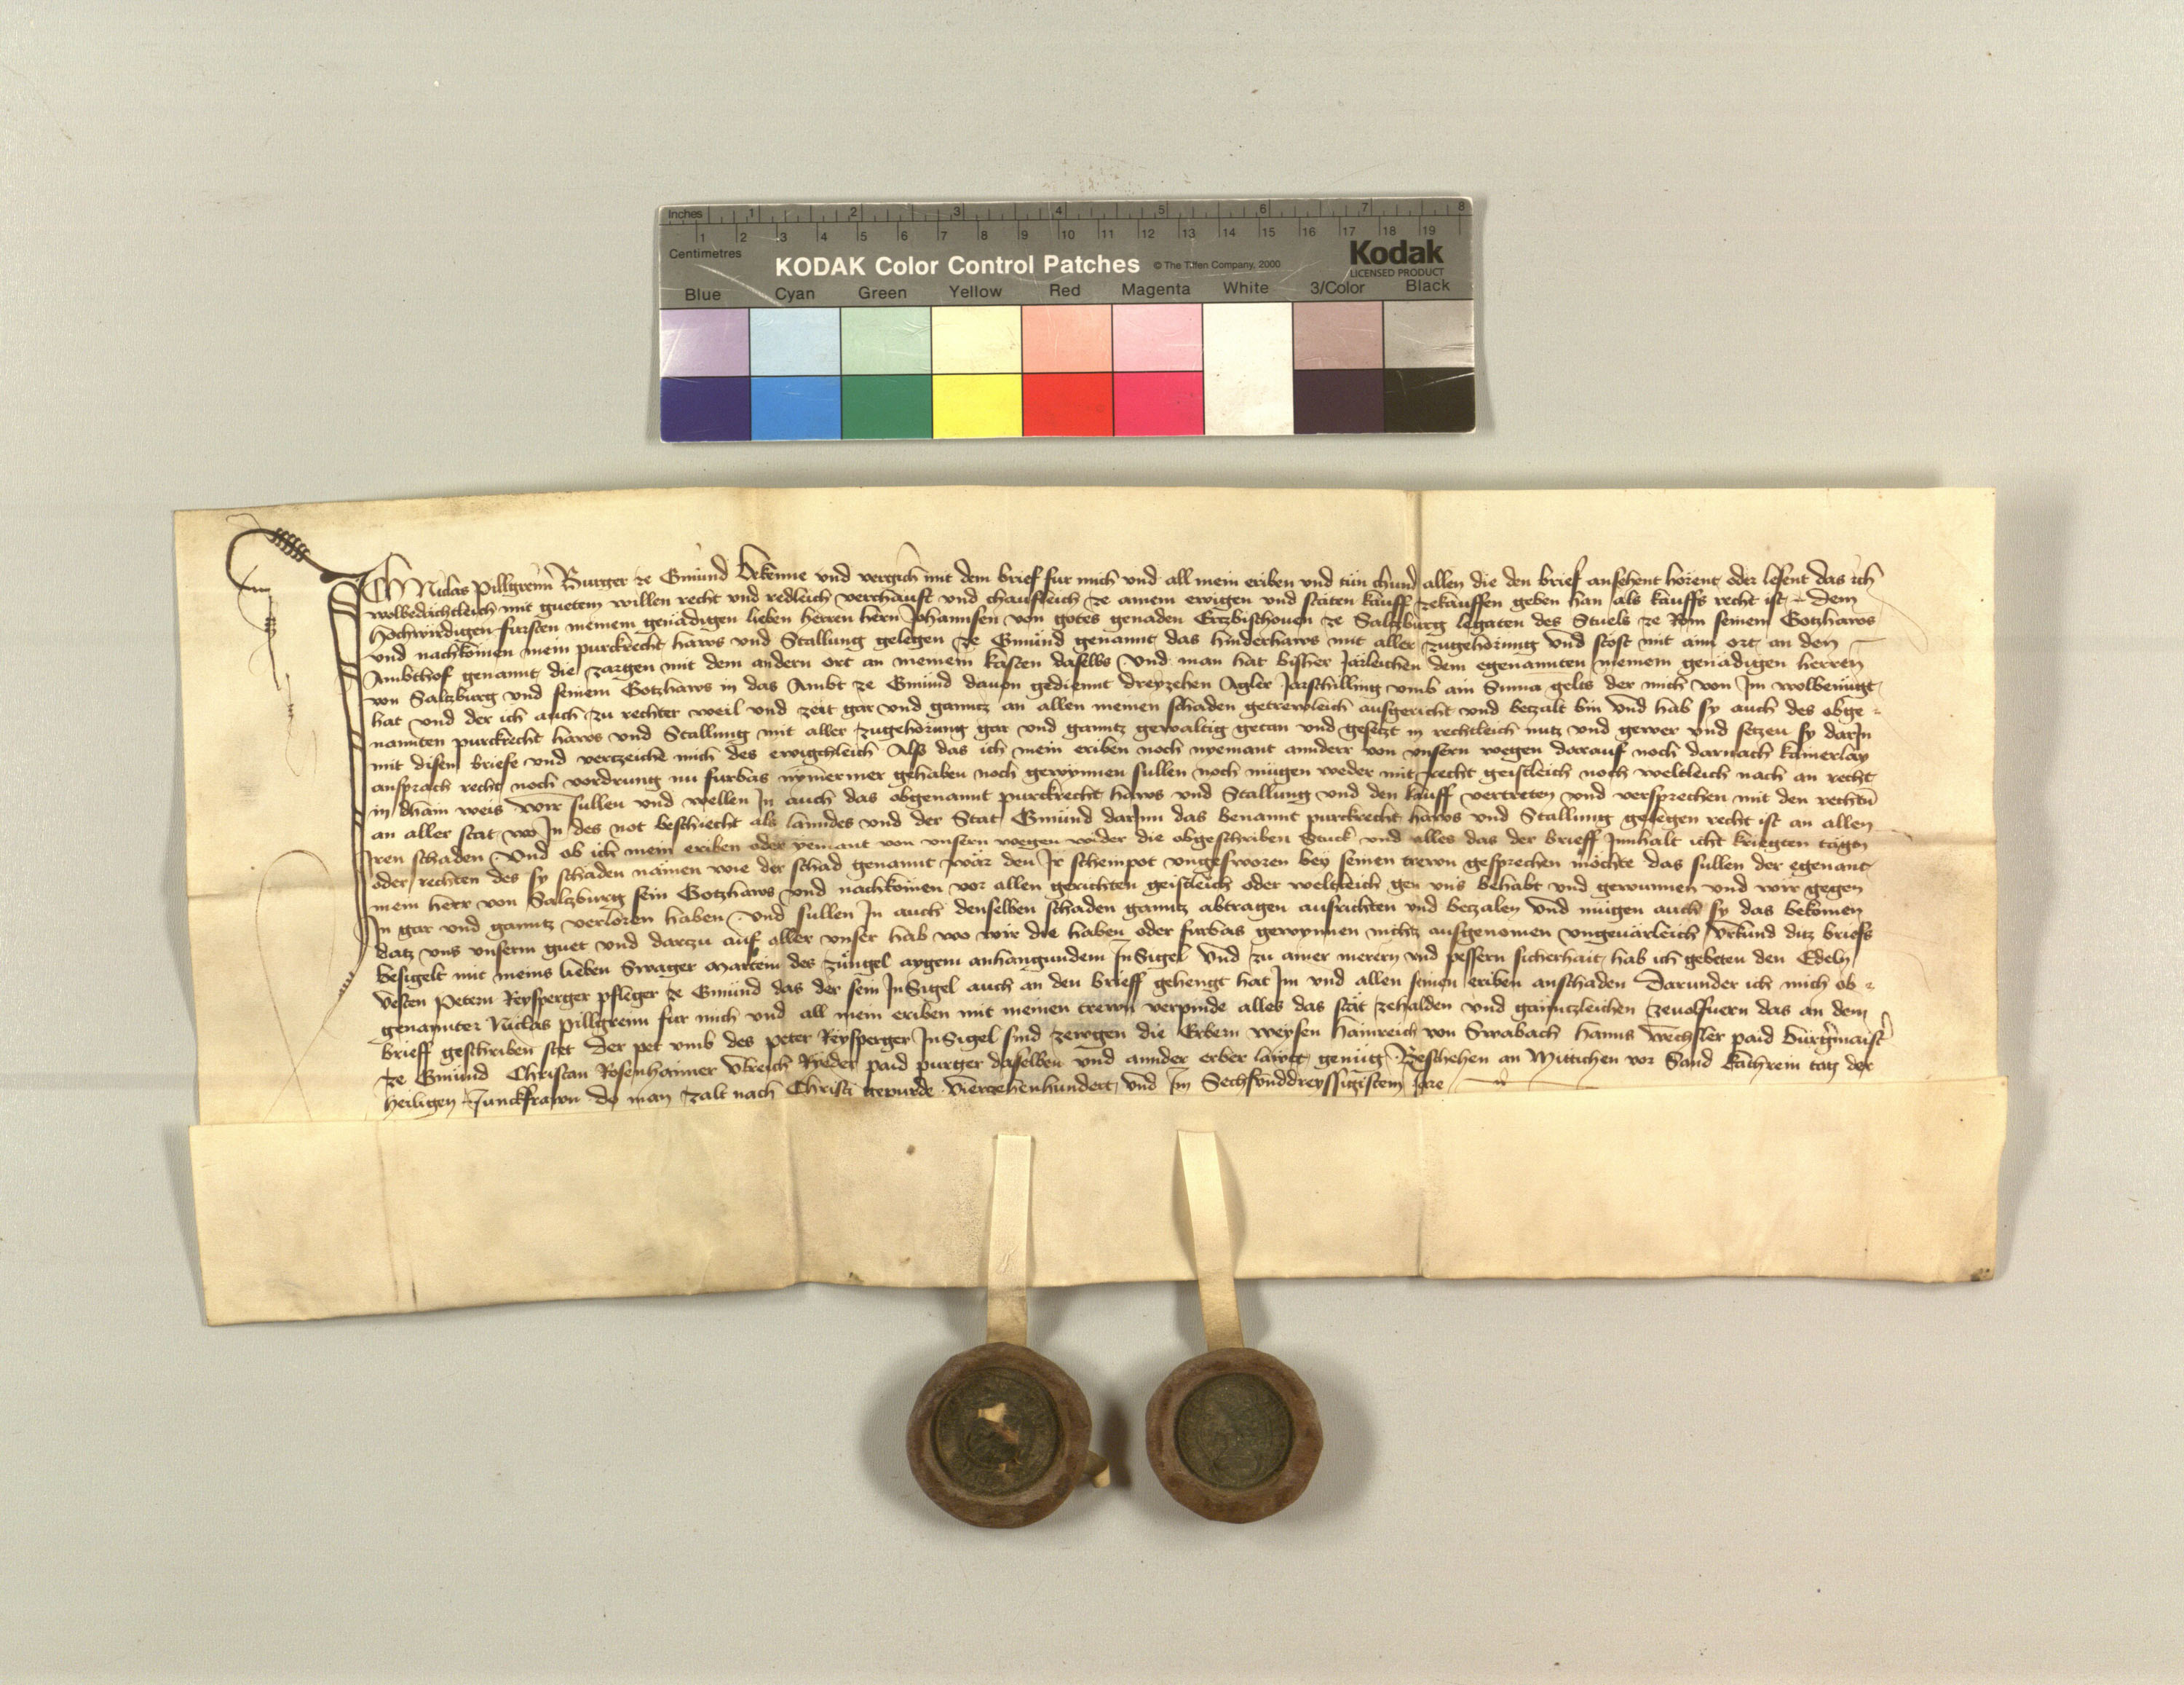 Inches 1 2 3 4 5 6 7 8
1 2 3 4 5 6 7 8 9 10 11 12 13 14 15 16 17 18 19
Centimetres
KODAK Color Control Patches © The Tiffen Company, 2000 Kodak
LICENSED PRODUCT
Blue Cyan Green Yellow Red Magenta White 3/Color Black
Ich Niclas Pillgreim Burger ze Gmünd bekenne und vergich mit dem brief fur mich und all mein eriben und tün chund allen die den brief ansehent hörent oder lesent das ich
wolbedächtleich mit guetem willen recht und redleich verchauft und chaufleich ze ainem ewigen und stäten kauff zekauffen geben han als kauffs recht ist Dem
Hochwirdigen fursten meinem genädigen lieben herren hern Johannsen von gotes genaden Ertzbischouen ze Saltzburg legaten des Stuels ze Rom seinem Gotzhaws
und nachkomen mein purckrecht haws und Stallung gelegen ze Gmünd genannt das hinderhaws mit aller zugehörung und stost mit aim ort an den
Ambthof genant die zargen mit dem andern ort an meinem kasten daselbs Und man hat bisher Järleichen dem egenannten meinem genädigen herren
von Saltzburg und seinem Gotzhaws in das Ambt ze Gmünd dauon gediennt dreyzehen Agler Jarschilling umb ain Suma gelts der mich von Im wolbenügt
hat und der ich auch zu rechter weil und zeit gar und ganntz an allen meinen schaden getrewleich ausgericht und betzalt bin Und hab sy auch des obge-
nannten purckrecht haws und Stallung mit aller zugehörung gar und ganntz gewaltig getan und gesetzt in rechtleich nutz und gewer und setzen sy darIn
mit disem briefe und vertzeiche mich des ewigchleich Alss das ich mein eriben noch nyemant annderr von unsern wegen darauf noch darnach kainerlay
ansprach recht noch vordrung nu furbas nymermer gehaben noch gewynnen sullen noch mügen weder mit recht geistleich noch weltleich nach an recht
in dhain weis Wir sullen und wellen In auch das obgenannt purckrecht haws und Stallung und den kauff vertreten und versprechen mit den rechtn
an aller stat wo In des not beschiecht als lanndes und der Stat Gmünd darInn das benannt purckrecht haws und Stallung gelegen recht ist an allen
Iren schaden Und ob ich mein eriben oder yemant von unsern wegen wider die obgeschriben Stuck und alles das der brieff Innhalt icht kriegten tägn
oder rechten des sy schaden nämen wie der schad genannt wär den Ir scheinpot ungesworen bey seinen trewn gesprechen möchte das sullen der egenant
mein herr von Saltzburg sein Gotzhaws und nachkomen vor allen gerichten geistleich oder weltleich gen uns behabt und gewunnen und wir gegen
In gar und ganntz verloren haben Und sullen In auch denselben schaden ganntz abtragen ausrichten und betzalen Und mügen auch sy das bekomen
datz uns unserm guet und dartzu auf aller unser hab wo wir die haben oder furbas gewynnen nichtz ausgenomen ungeuärleich Urkund ditz briefs
besigelt mit meins lieben Swager Martein des Züngel aygem anhangundem InSigel Und zu ainer merern und pessern sicherhait hab ich gebeten den Edeln
Vesten Petern Reysperger pfleger ze Gmünd das der sein InSigel auch an den brieff gehengt hat Im und allen seinen eriben anschaden Darunder ich mich ob-
genannter Niclas Pillgreim fur mich und all mein eriben mit meinen trewn verpinde alles das stät zehalden und gänntzleichen zeuolfuern das an dem
brieff geschriben stet Der pet umb des Peter Reysperger InSigel sind zewgen die Erbern weysen Hainreich von Swabach Hanns Wechsler paid burgermaister
ze Gmünd Christan Rosenhaimer Ulreich Rieder paid purger daselben und annder erber läwt genüg Beschehen an Mittichen vor Sand kathrein tag der
heiligen Junckfrawn do man zalt nach Christi gepurde Viertzehenhundert und Im Sechsunddreyssigistem Jare